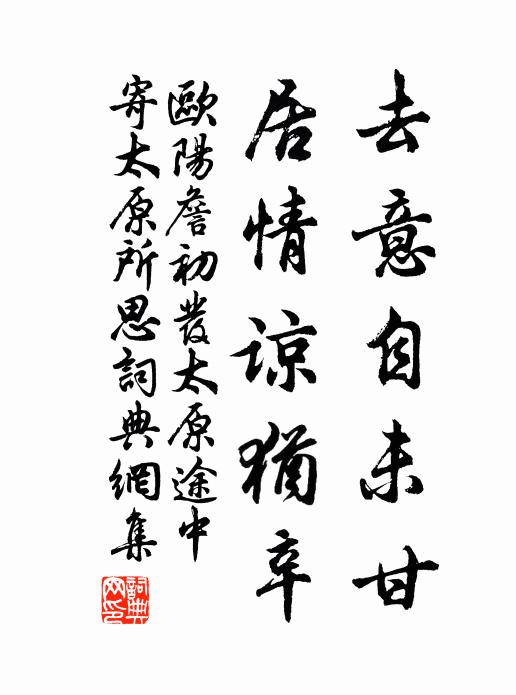 去意自未甘
居情諒猶辛
歐陽詹初發太原途中
寄太原所思詞典網集